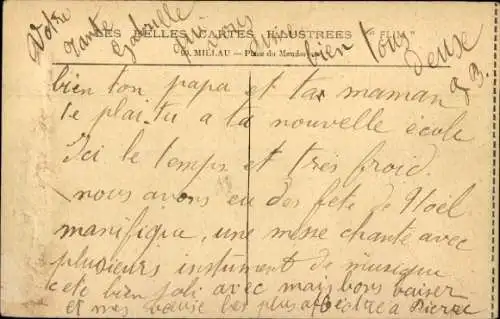 LES BELLES CARTES ILLUSTRÉES "FLIM"
MILLAU — Place du Mandarous
Votre
Tante
Gabrielle
qui vous aime
bien tous
deux
G B.
bien ton papa et ta maman
te plait-tu a la nouvelle école
Ici le temps et très froid.
nous avons eu des fete de Noël
manifique, une messe chante avec
plusieurs instument de musique
cete bien joli avec mais bons baiser
et mes voeux les plus a Pierre